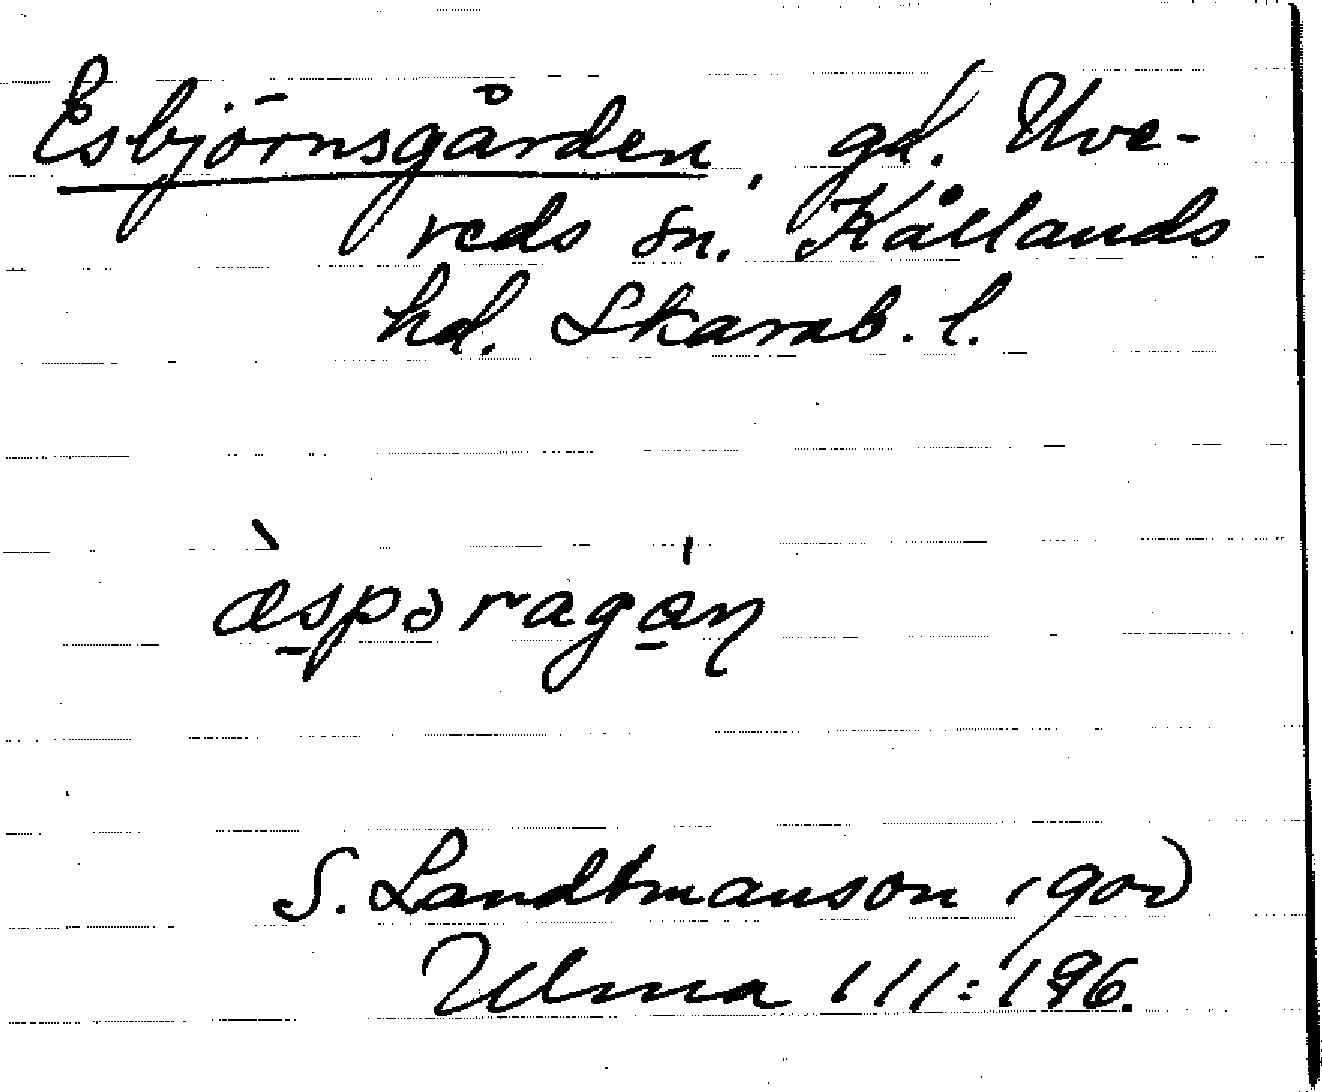 Esbjörnsgården, gd. Uve-
reds sn. Kållands
hd. Skarab. l.
æ̀spəragǻn
S. Landtmanson
Ulma 111:196.